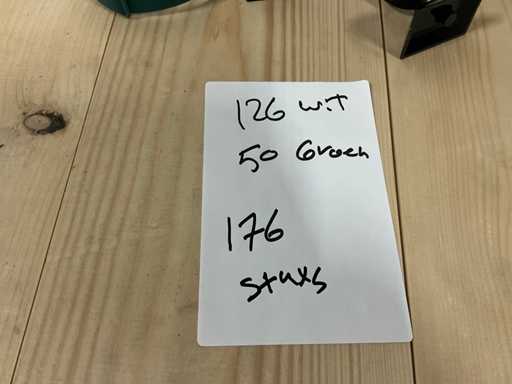 126 wit
50 Groen
176
stuks